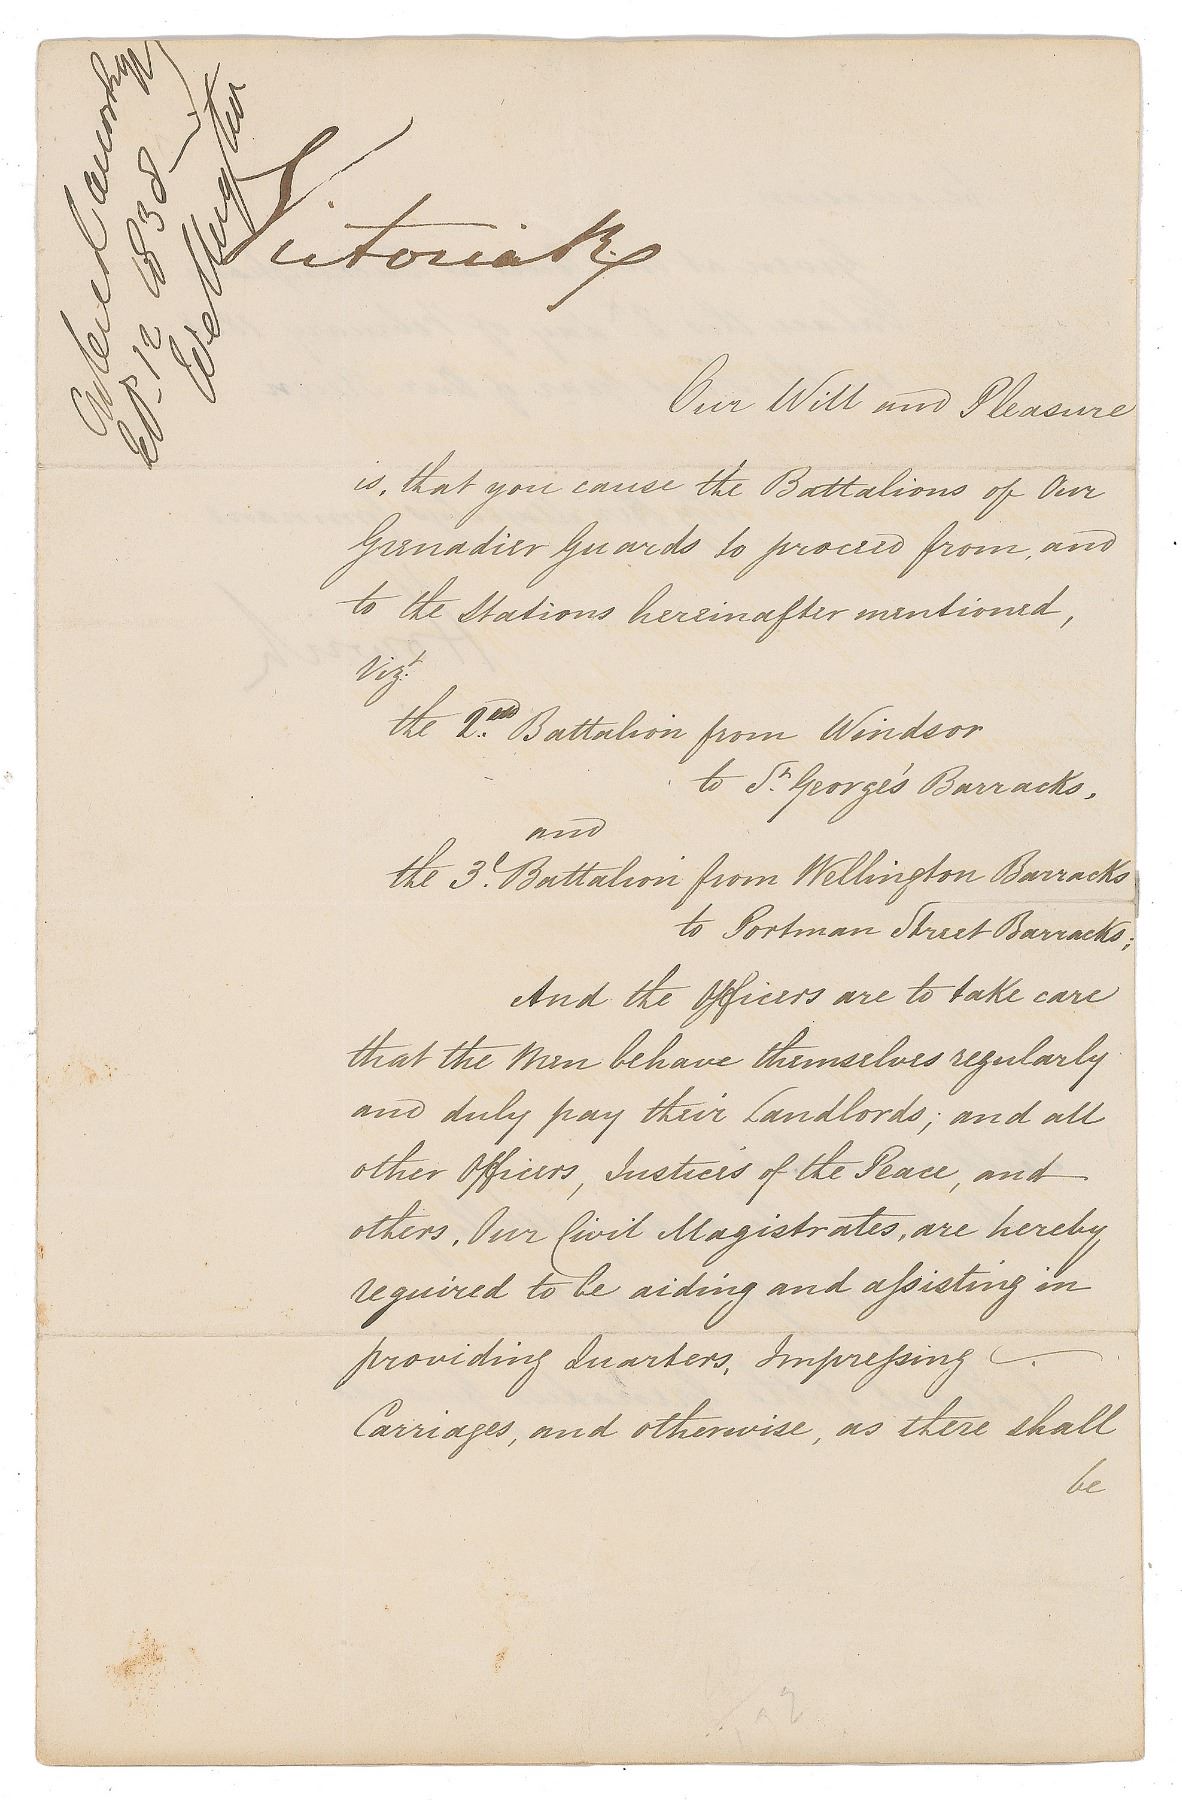 Sep 12 1838
Wellington
Victoria R
Our Will and Pleasure
is, that you cause the Battalions of Our
Grenadier Guards to proceed from, and
to the Stations hereinafter mentioned,
Vizt.
the 2nd Battalion from Windsor
to St. George's Barracks,
and
the 3d. Battalion from Wellington Barracks
to Portman Street Barracks;
And the Officers are to take care
that the Men behave themselves regularly
and duly pay their Landlords; and all
other Officers, Justices of the Peace, and
others, Our Civil Magistrates, are hereby
required to be aiding and assisting in
providing Quarters, Impressing
Carriages, and otherwise, as there shall
be